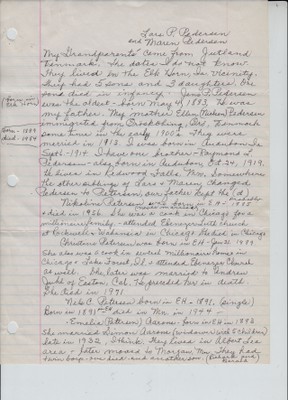 Lars P. Pedersen
and Maren Pedersen
My Grandparents came from Jutland
Denmark. The dates I do not know.
They lived by the Elk Horn, Ia. Vicinity.
They had 5 Sons and 3 daughters. One
son died in infancy. Jens P. Pedersen
was the oldest - born May 4, 1883. He was
my father. My mother Ellen Pedersen
immigrated from Denmark
some time in the early 1900s. They were
married in 1913. I was born in Audubon, Ia.
Sept. 1914. I have one brother - Raymond
Pedersen - also born in Audubon, Oct. 24, 1919.
He lives in Redwood Falls, Mn. Somewhere
the other children of Lars & Maren changed
Pedersen to Petersen, our father kept the (d)
Nikoline Petersen was born in E.H. 
& died in 1956. She was a cook in Chicago for a
millionaire family - attended Ebenezer Luth. church
in Chicago
Christine Petersen was born in EH - Jan 22, 1889.
She also was a cook in several Millionaire Homes in
Chicago & Lake Forest, Ill. & attended Ebenezer Church
as well. She later was married to Andrew
of Exira, Ia. He preceded her in death.
She died in 1971
Nels C. Petersen born in EH - 1891, (single)
Born in 1891 died in Mn. in 1944 -
Emelia (Petersen) Aarons - born in EH in 1893
She married Simon Aarons (widower with 5 children)
late in 1932, I think. They lived in Albert Lea
area & later moved to Morgan, Mn. They had
twin boys - one died and another son.
born
Elk Horn
born - 1883
died - 1954